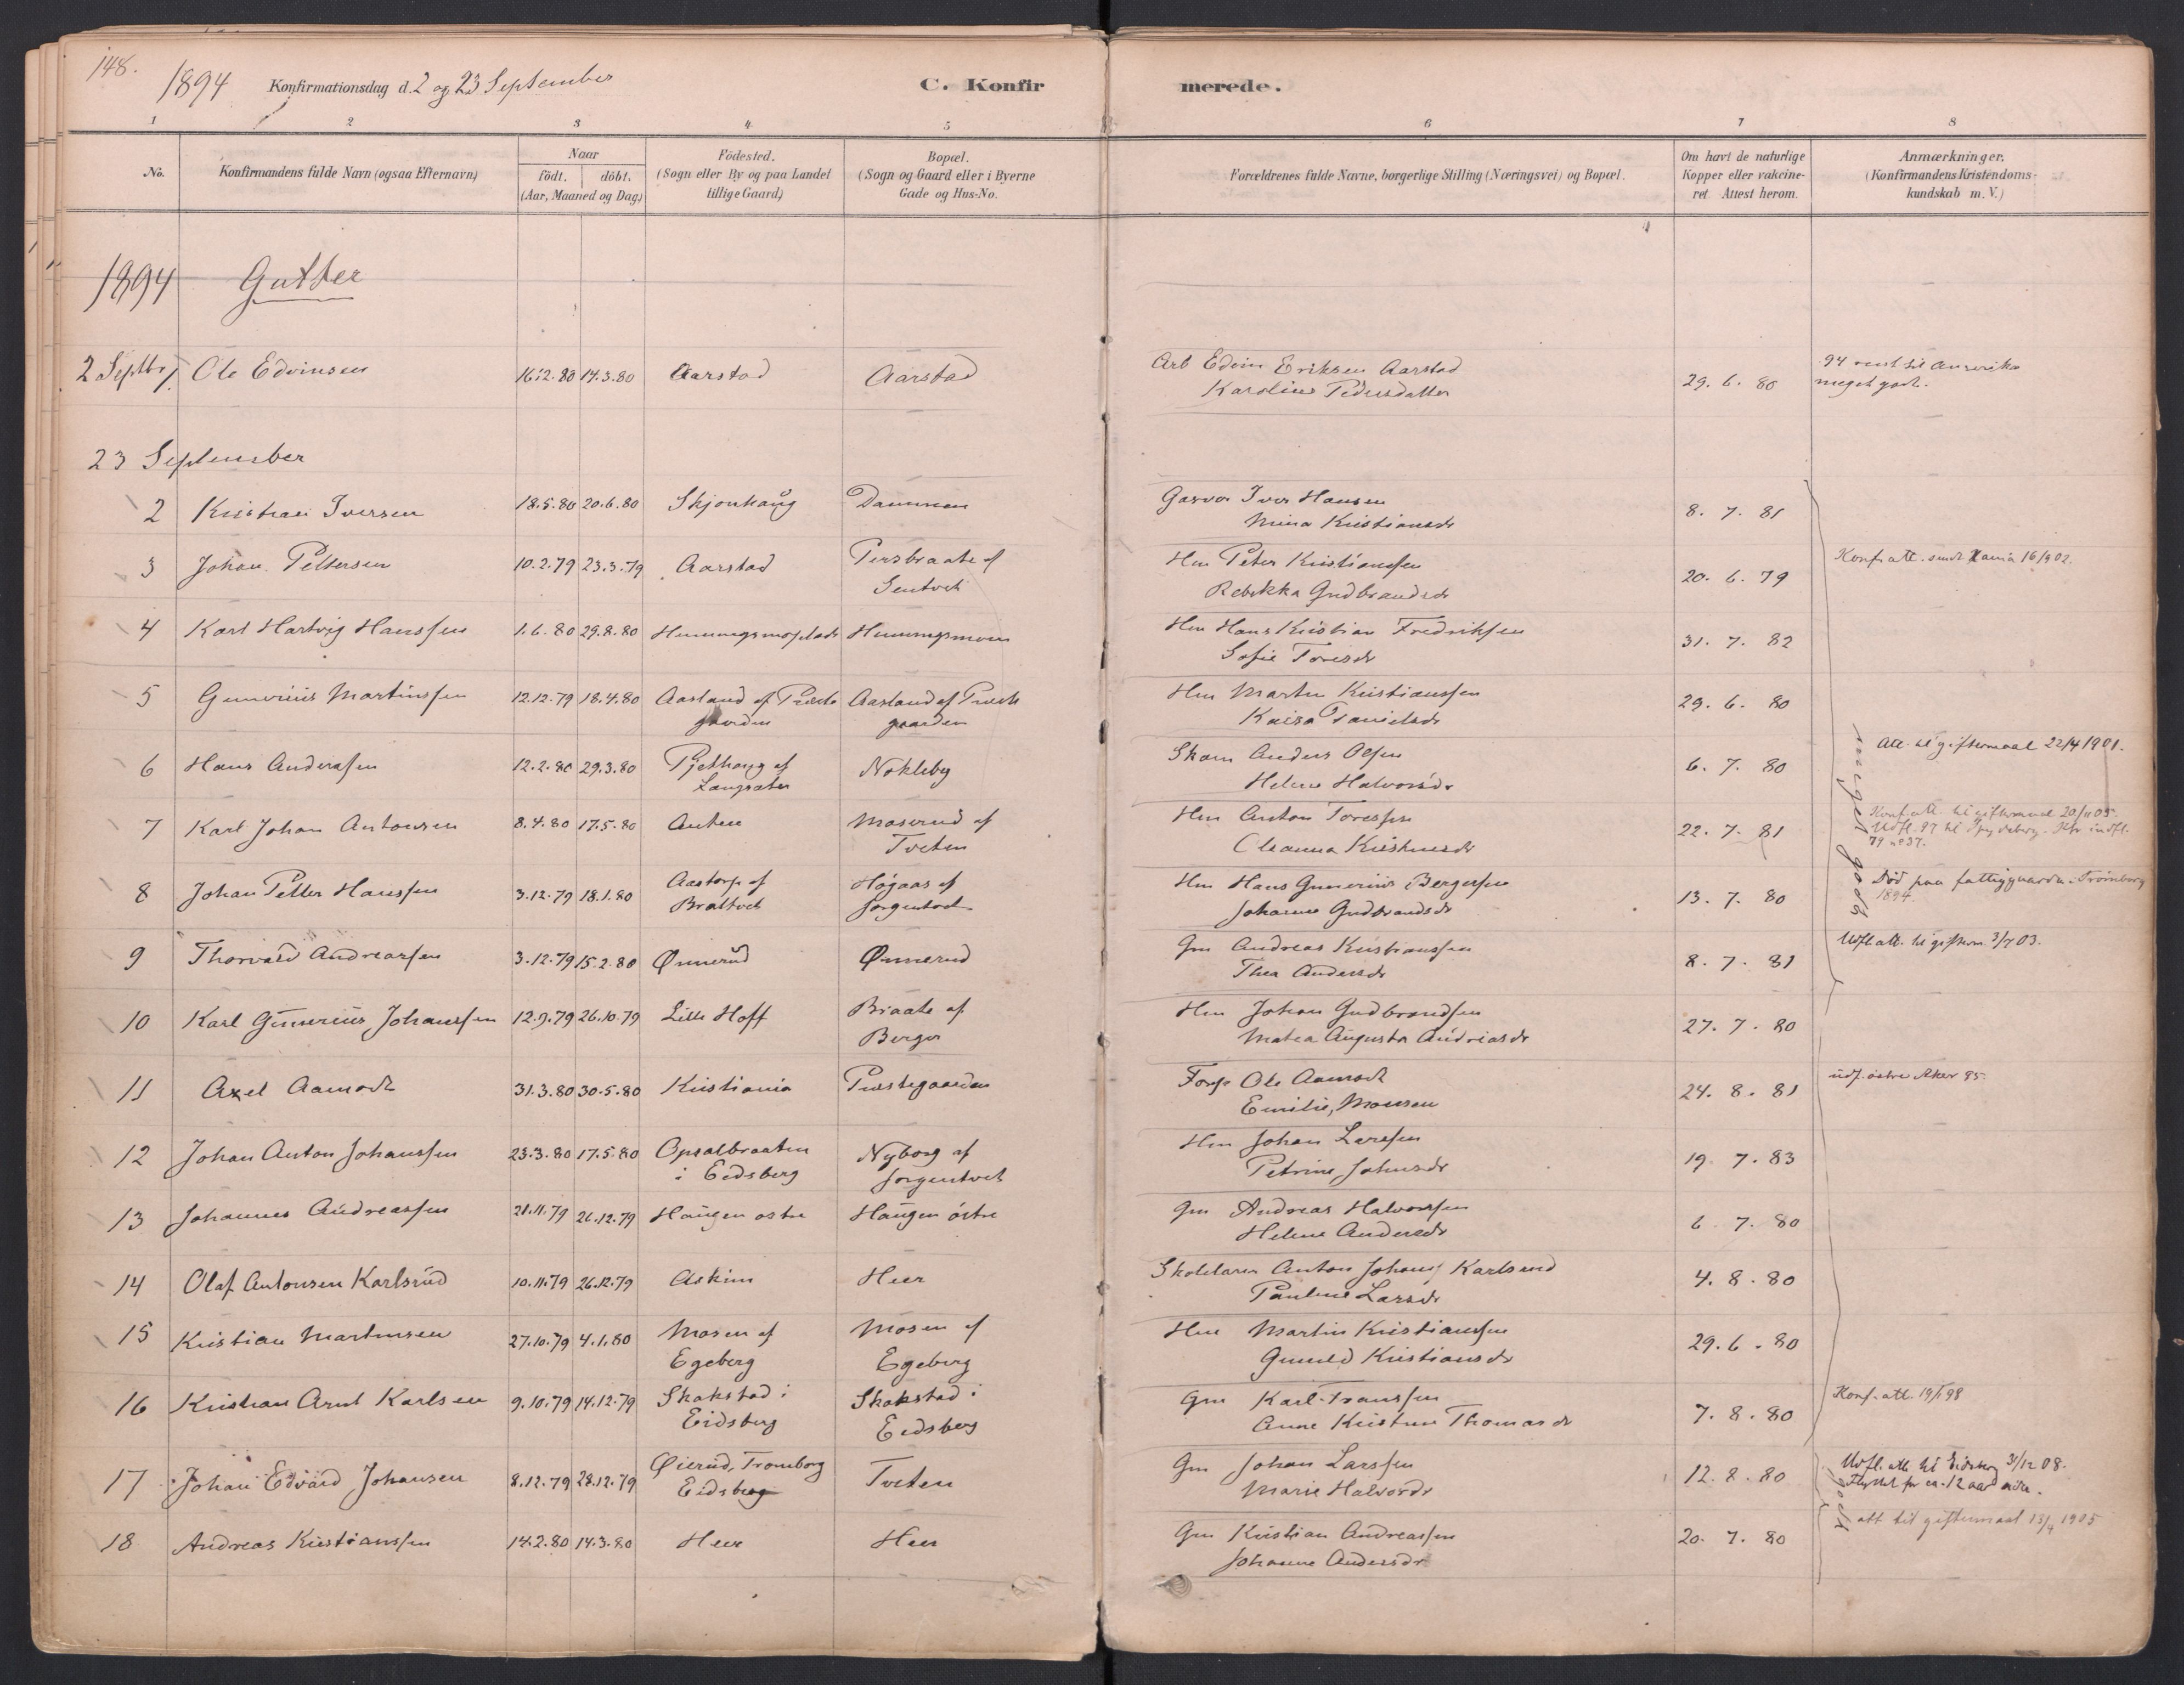 148.
1894 Konfirmationsdag d. 2 og 23 September
C. Konfirmerede.
1 2 3 4 5 6 7 8
No. Konfirmandens fulde Navn (ogsaa Efternavn) Naar födt. döbt. (Aar, Maaned og Dag) Födested. (Sogn eller By og paa Landet tillige Gaard) Bopæl. (Sogn og Gaard eller i Byerne Gade og Hus-No. Forældrenes fulde Navne, borgerlige Stilling (Næringsvei) og Bopæl. Om havt de naturlige Kopper eller vakcineret. Attest herom. Anmærkninger. (Konfirmandens Kristendomskundskab m. V.)
1894 Gutter
2 Septbr 1 Ole Edvinsen 16.2.80 14.3.80 Aarstad Aarstad Arb Edvin Eriksen Aarstad 29. 6. 80 94 reist til Amerika
Karoline Pedersdatter meget godt.
23 September
2 Kristian Iversen 18.5.80 20.6.80 Skjonhaug Dammen Iver Hansen 8. 7. 81
Mina Kristiansdr
3 Johan Pettersen 10.2.79 23.3.79 Aarstad Persbraate af Hm Peter Kristianssen 20. 6. 79 Konf. att. sendt Kania 16/9 02.
Rebekka Gudbrandsdr
4 Karl Hartvig Hanssen 1.6.80 29.8.80 Hm Hans Kristian Fredriksen 31. 7. 82
Sofie Toresdr
5 Gunerius Martinssen 12.12.79 18.4.80 Aasland af Præste Aasland af Præste Hm Martin Kristianssen 29. 6. 80
gaarden gaarden Kaisa Danielsdr
6 Hans Anderssen 12.2.80 29.3.80 af Nokleby Anders Olsen 6. 7. 80 Att. til giftermaal 22/4 1901.
Langsater Helene Halvorsdr
7 Karl Johan Antonsen 8.4.80 17.5.80 Auten Moserud af Hm Anton Toressen 22. 7. 81 Konf. att. til giftermaal 20/11 05.
Tveten Oleanna Kristiansdr Udfl. 97 til Spydeberg. Kfr indfl.
79 no 37.
8 Johan Petter Hanssen 3.12.79 18.1.80 Aastorp af Högaas af Hm Hans Gunerius Bergersen 13. 7. 80 Död paa fattiggaarden i Trömborg
Johanne Gudbrandsdr 1894.
meget godt
9 Thorvald Andreassen 3.12.79 15.2.80 Önnerud Önnerud Gm Andreas Kristianssen 8. 7. 81 Udfl att. til gifterm. 3/7 03.
Thea Andersdr
10 Karl Gunerius Johanssen 12.9.79 26.10.79 Lille Hoff Braate af Hm Johan Gudbrandsen 27. 7. 80
Berger Matea Augusta Andreasdr
11 Axel Aamodt 31.3.80 30.5.80 Kristiania Præstegaarden Forp Ole Aamodt 24. 8. 81 udf. östre Aker 95.
Emilie, Monsen
12 Johan Anton Johanssen 23.3.80 17.5.80 Opsalbraaten Nyborg af Hm Johan Larssen 19. 7. 83
i Eidsberg Sorgentvet Petrine Johnsdr
13 Johannes Andreassen 21.11.79 26.12.79 Haugen ostre Haugen östre Gm Andreas Halvorssen 6. 7. 80
Helene Andersdr
14 Olaf Antonsen Karlsrud 10.11.79 26.12.79 Askim Heer Skolelærer Anton Johans. Karlsrud 4. 8. 80
Pauline Larsdr
15 Kristian Martinsen 27.10.79 4.1.80 Mosen af Mosen af Hm Martin Kristianssen 29. 6. 80
Egeberg Egeberg Gunild Kristiansdr
16 Kristian Arnt Karlsen 9.10.79 14.12.79 Skakstad i Skakstad i Gm Karl Franssen 7. 8. 80 Konf. att. 19/1 98
Eidsberg Eidsberg Anne Kristine Thomasdr
17 Johan Edvard Johansen 8.12.79 28.12.79 Öierud, Tromborg Tveten Gm Johan Larssen 12. 8. 80 Udfl. att. til Eidsberg 3/12 08.
Eidsberg Marie Halvorsdr Flyttet for ca. 12 aar siden.
godt
18 Andreas Kristianssen 14.2.80 14.3.80 Heer Heer Gm Kristian Andreassen 20. 7. 80 att til giftermaal 13/4 1905
Johanne Andersdr